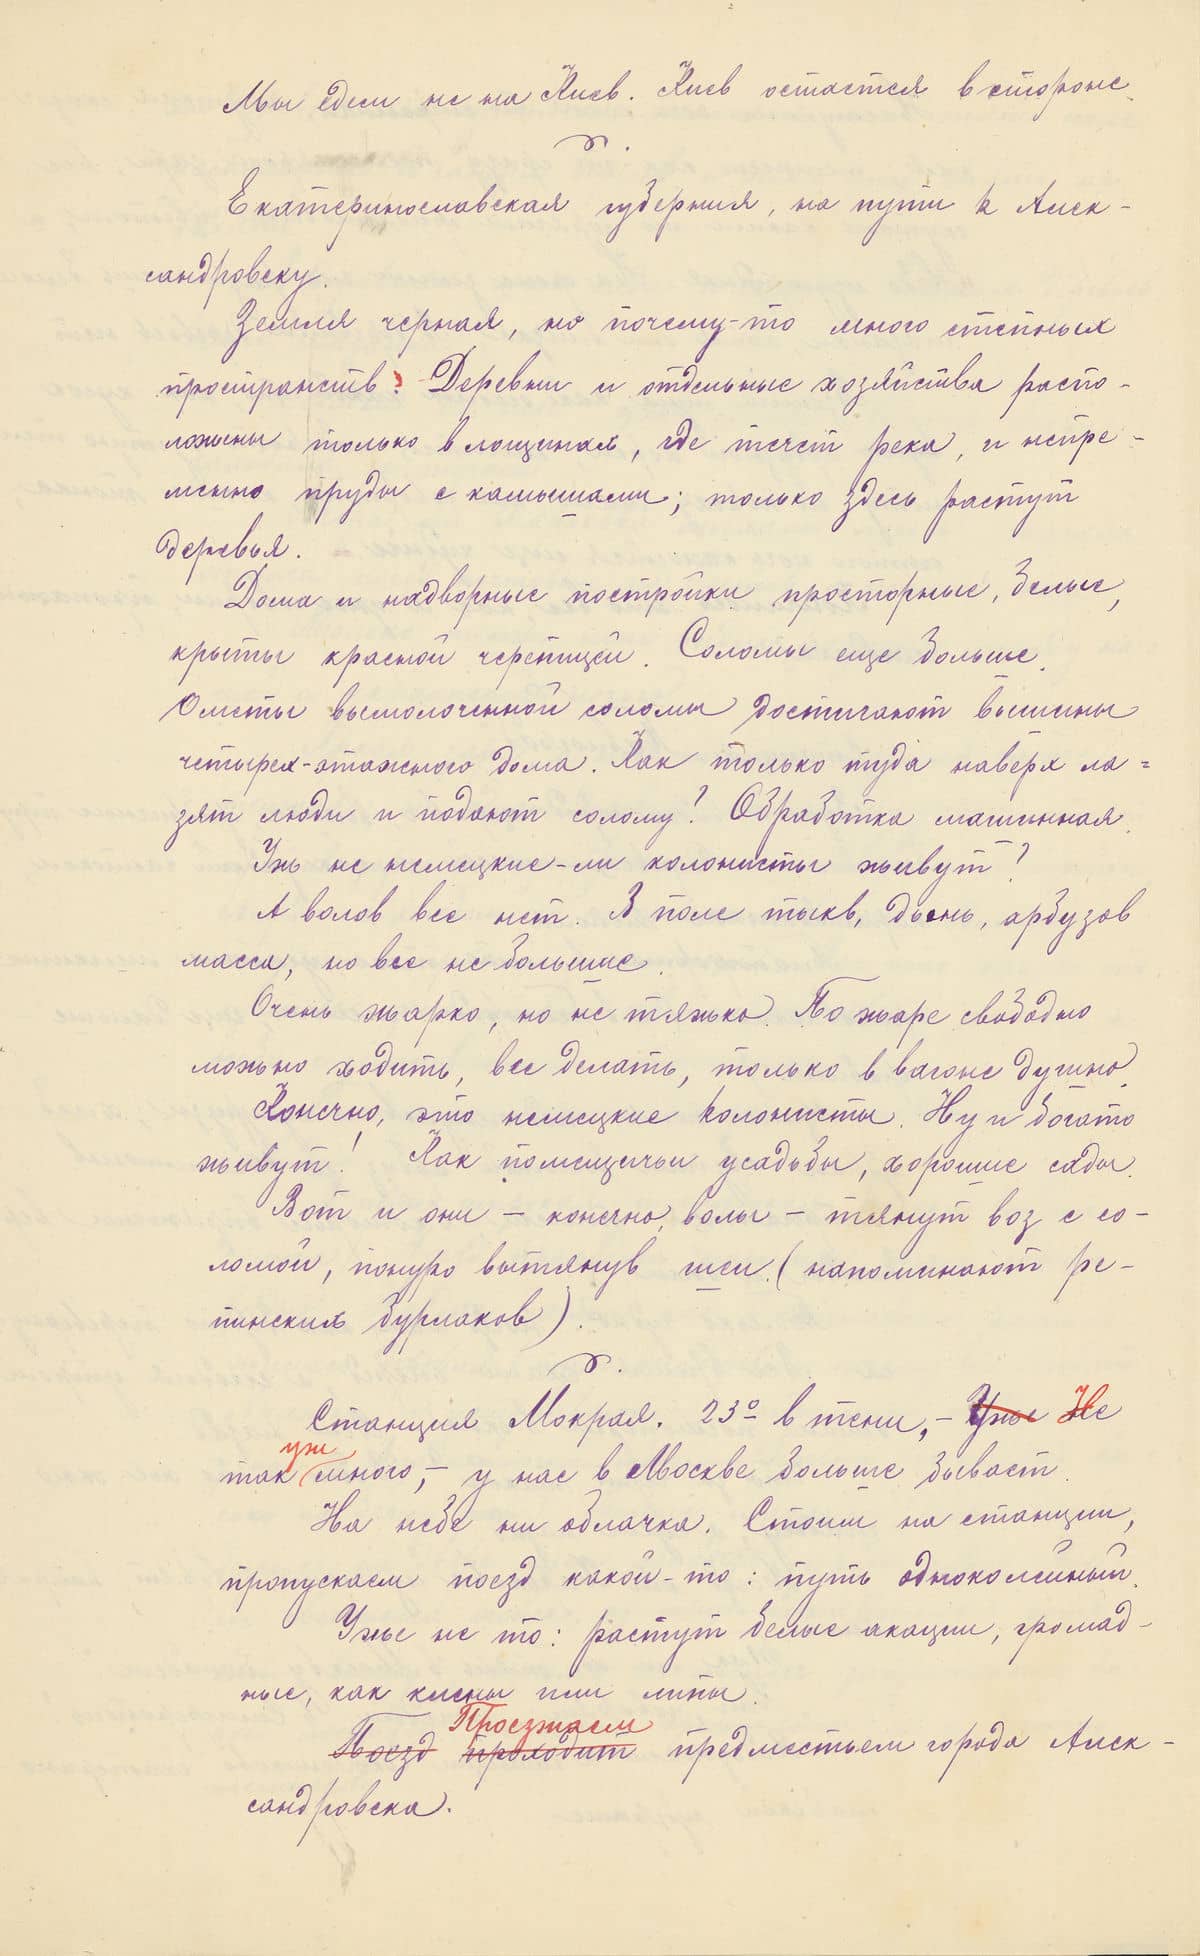 Мы едем не на Киев. Киев остается в стороне.
Екатеринославская губерния, на пути к Алек-
сандровску.
Земля черная, но почему-то много степных
пространств? Деревни и отдельные хозяйства распо-
ложены только в лощинах, где течет река, и непре-
менно пруды с камышами; только здесь растут
деревья.
Дома и надворные постройки просторные, белые,
крыты красной черепицей. Соломы еще больше.
Ометы вымолоченной соломы достигают вышины
четырех-этажного дома. Как только туда наверх ла=
зят люди и подают солому? Обработка машинная.
Уж не немецкие-ли колонисты живут?
А волов все нет. В поле тыкв, дынь, арбузов
масса, но все не большие.
Очень жарко, но не тяжко. По жаре свободно
можно ходить, все делать, только в вагоне душно.
Конечно, это немецкие колонисты. Ну и богато
живут! Как помещичьи усадьбы, хорошие сады.
Вот и они – конечно, волы – тянут воз с со-
ломой, понуро вытянув шеи (напоминают ре-
пинских бурлаков).
Станция Мокрая. 23º в тени, – Уже Не
так уж много, – у нас в Москве больше бывает.
На небе ни облачка. Стоим на станции,
пропускаем поезд какой-то: путь одноколейный.
Уже не то: растут белые акации, громад-
ные, как клены или липы.
Проезжаем
Поезд проходит предместьем города Алек-
сандровска.